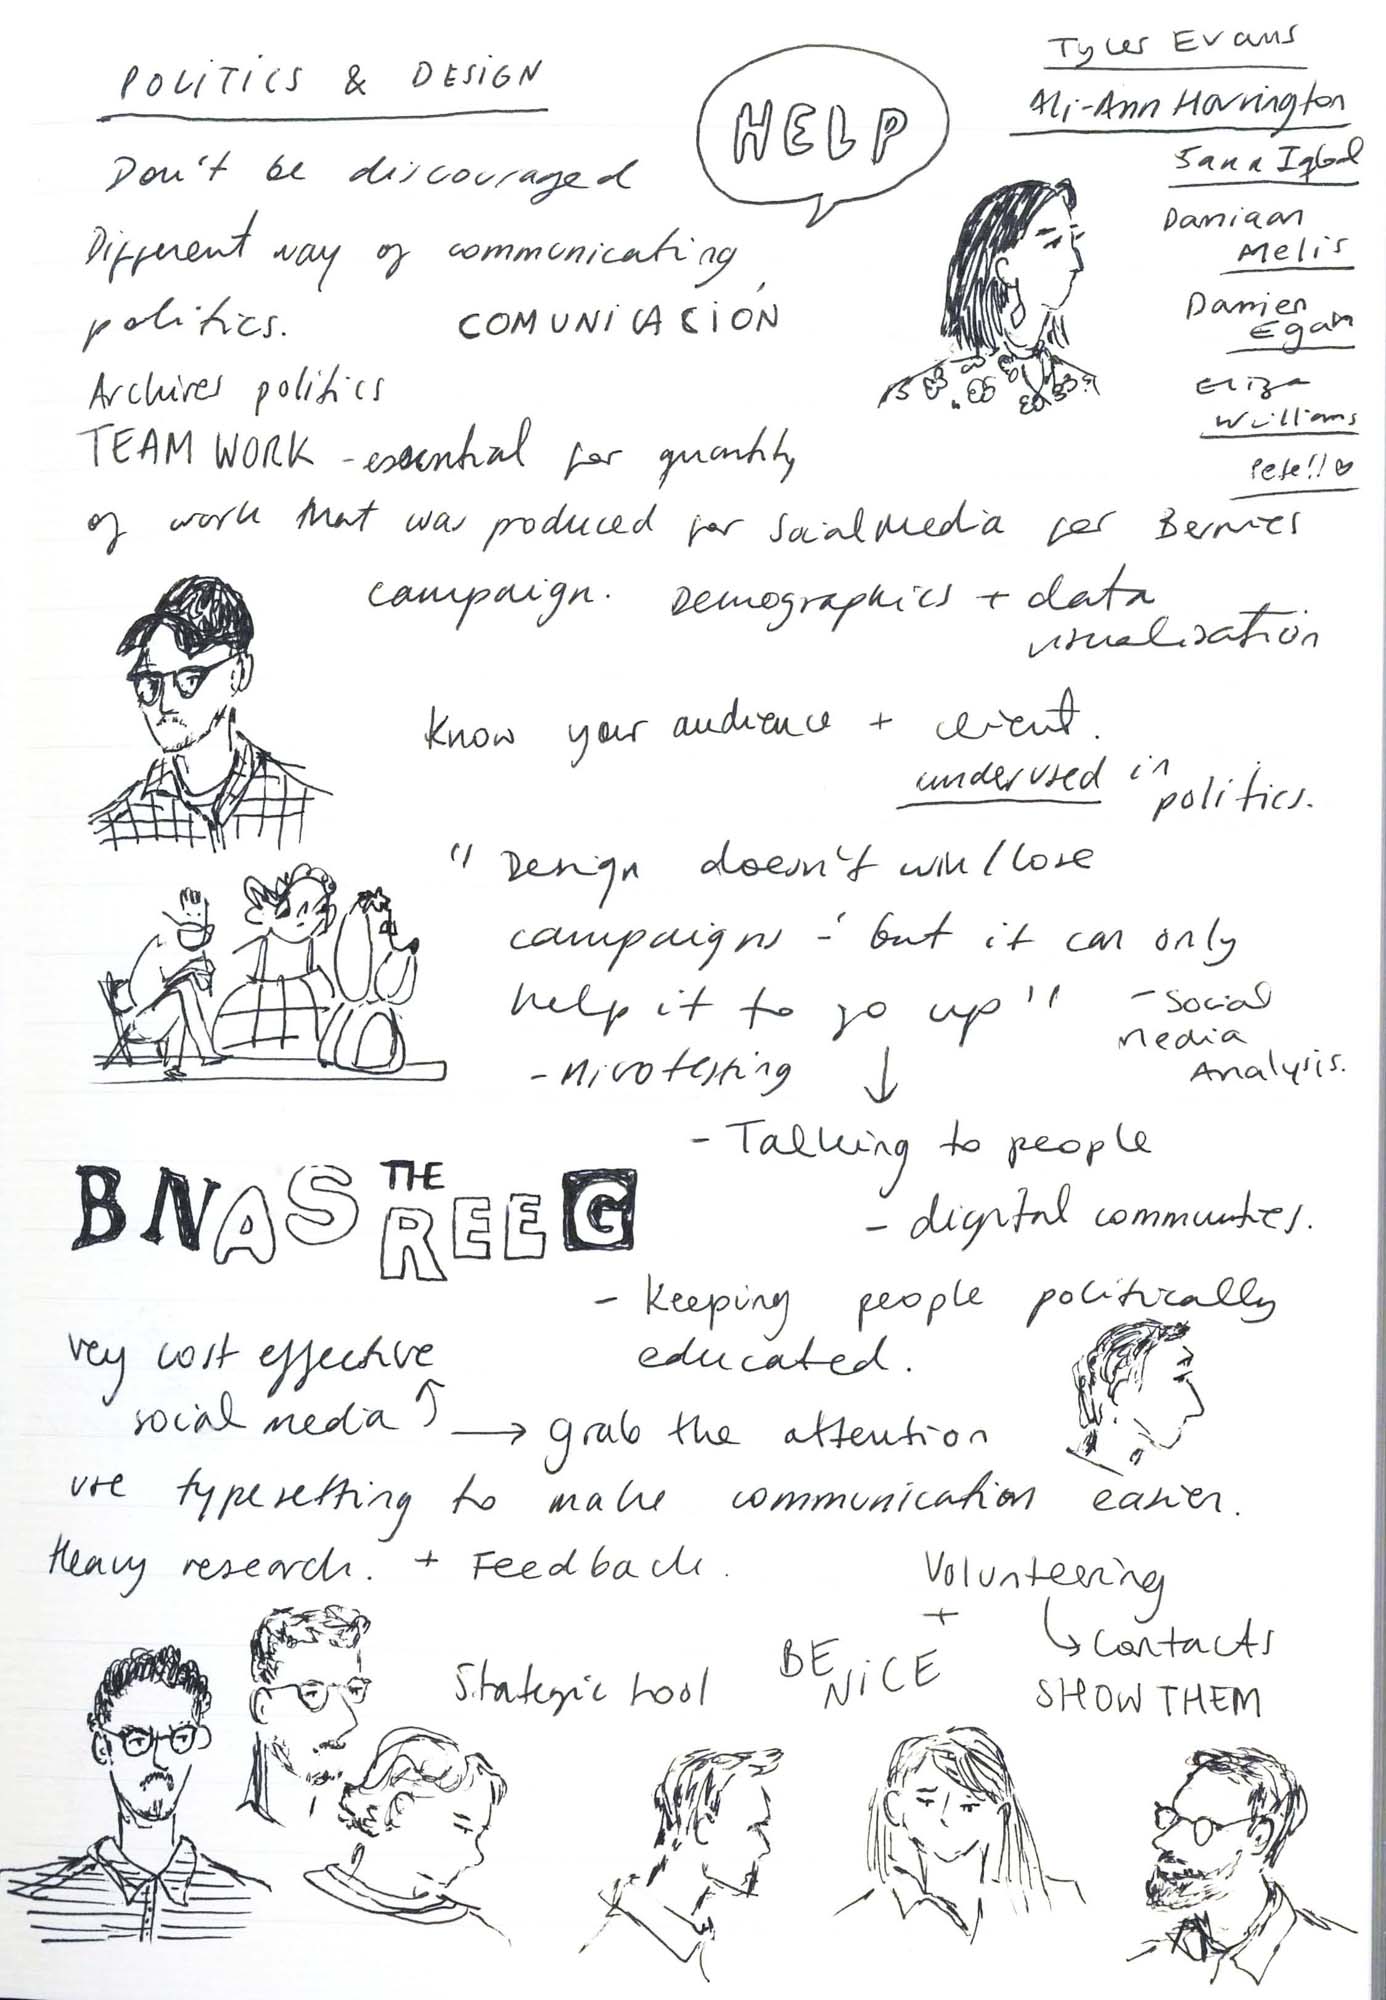 POLITICS & DESIGN
HELP
Tyler Evans
Ali-Ann Harrington
Sana Iqbal
Damiaan
Melis
Damien
Egan
Eliza
Williams
Pete!! ♡
Don't be discouraged
Different way of communicating
politics.
COMUNICACIÓN
Archives politics
TEAM WORK - essential for quantity
of work that was produced for Social Media for Bernies
campaign. Demographics + data
visualisation
Know your audience + client.
underused in
politics.
" Design doesn't win/lose
campaigns - ' but it can only
help it to go up "
- Social
Media
Analysis.
- Microtesting
↓
- Talking to people
- digital communities.
BNAS THE REEG
- Keeping people politically
educated.
very cost effective
social media
→ grab the attention
use typesetting to make communication easier.
Heavy research. + Feedback.
Volunteering
+
contacts
Strategic tool
BE
NICE
SHOW THEM